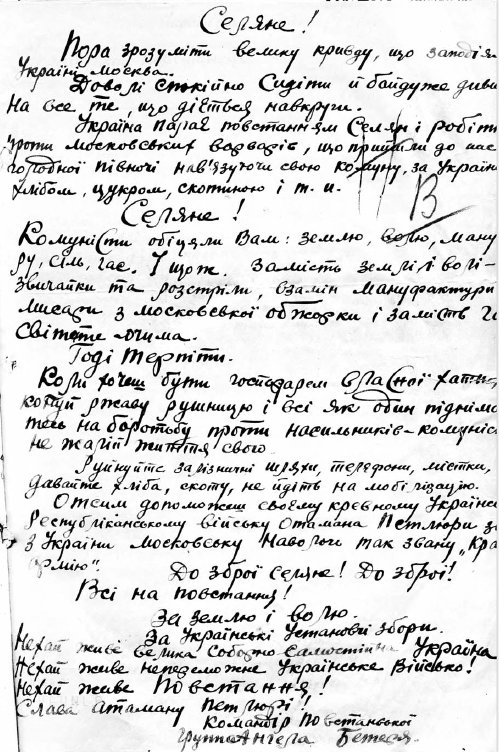 Селяне!
Пора зрозуміти велику кривду, що заподія
Україні Москва.
Доволі спокійно сидіти й байдуже диви
на все те, що дієтьса навкруги.
Україна палає повстанням селян і робітн
проти московських варварів, що прийшли до нас
голодної півночі нав'язуючи свою комуну, за Україн
хлібом, цукром, скотиною і т. и.
В
Селяне!
Комуністи обіцяли Вам: землю, волю, ману
ру, сіль, гас. І що ж. Замість землі і волі –
звичайки та розстріли, взамін мануфактури
лисари з московської обжорки і замість г
світете очима.
Годі терпіти.
Коли хочеш бути господарем власної хати,
копуй ржаву рушницю і всі як один підніма
тесь на боротьбу проти насильників-комуніс
не жалій життя свого.
Руйнуйте залізничні шляхи, телефони, містки,
давайте хліба, скоту, не йдіть на мобілізацію.
Отсим допоможеш своєму кревному Українс
Республіканському війську отамана Петлюри
з України московську наволоч так звану „Кра
армію".
До зброї селяне! До зброї!
Всі на повстання!
За землю і волю.
За Українські Установчі збори.
Нехай живе велика соборно самостійна Україна
Нехай живе непереможне Українське військо!
Нехай живе Повстання!
Слава атаману Петлюрі!
Командір Повстанської
группи Ангела